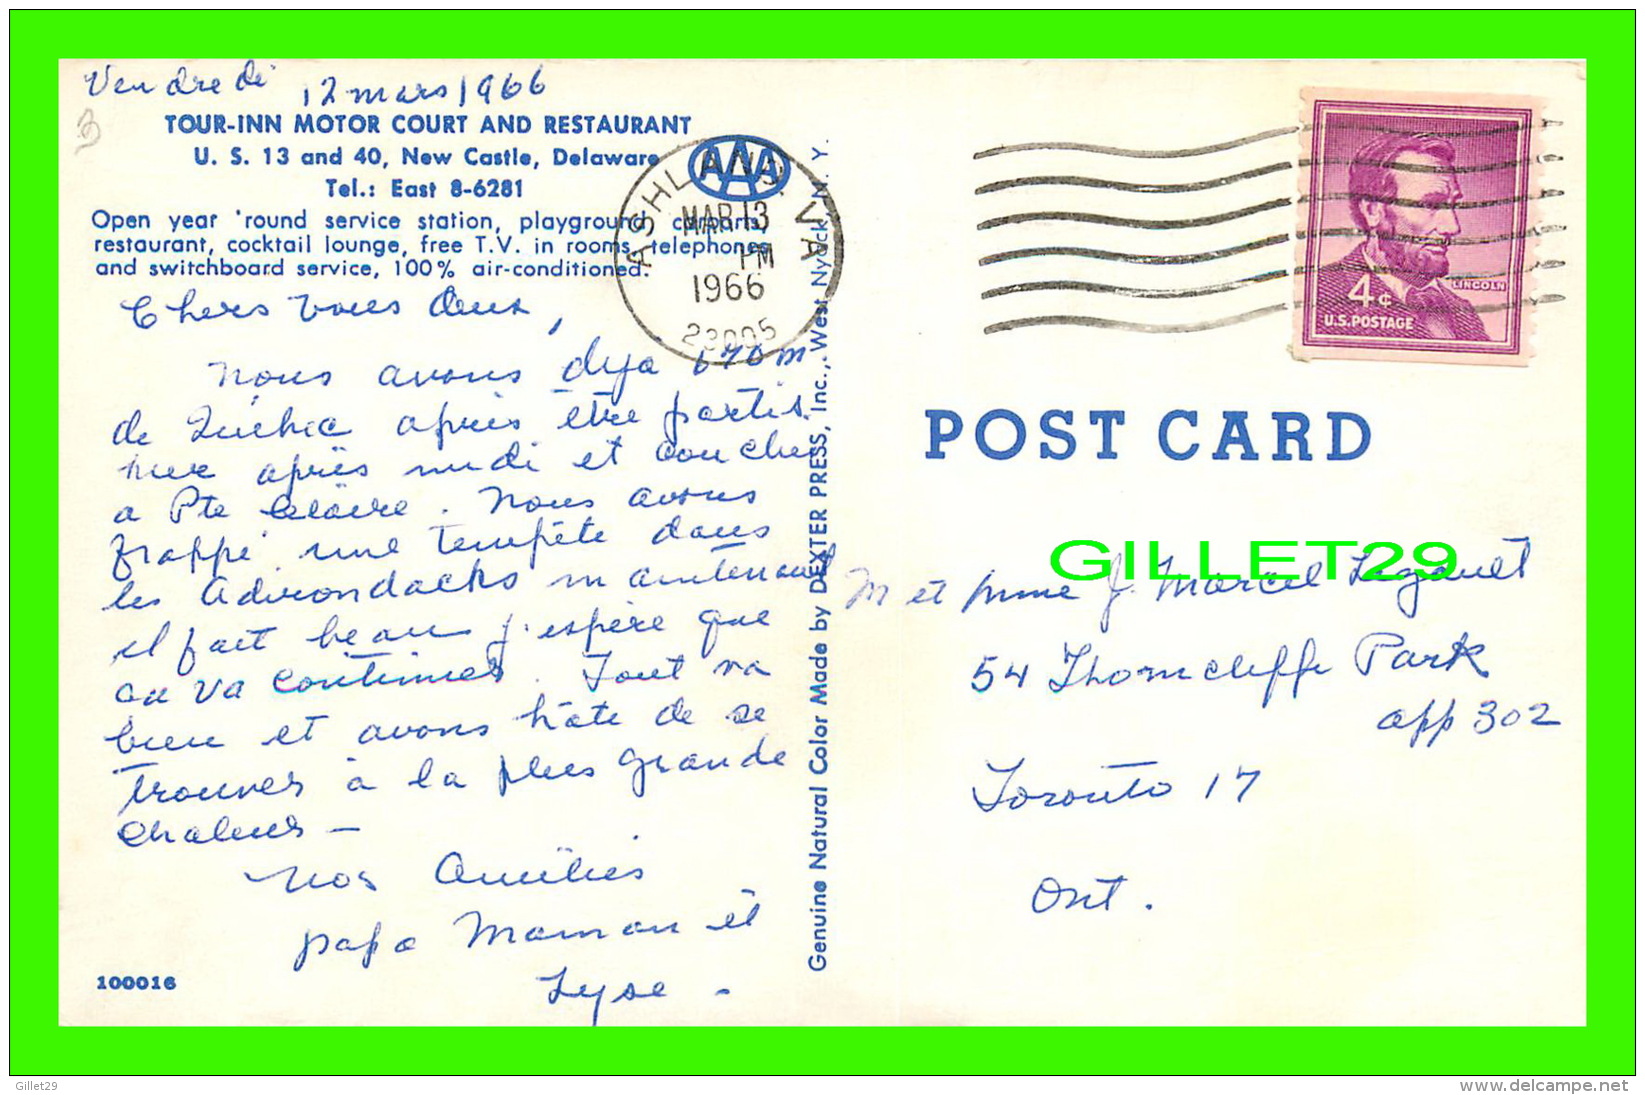 Vendredi 12 mars 1966
3
TOUR-INN MOTOR COURT AND RESTAURANT
U. S. 13 and 40, New Castle, Delaware
Tel.: East 8-6281
Open year 'round service station, playground, carports,
restaurant, cocktail lounge, free T.V. in rooms, telephones
and switchboard service, 100% air-conditioned.
AAA
ASHLAND, VA
MAR 13
PM
1966
23005
Chers vous deux,
Nous avons deja 670 m
de Québec après être partis
hier après midi et coucher
a Pte Claire. Nous avons
frappé une tempête dans
les Adirondacks maintenant
il fait beau j'espère que
ca va continuer. Tout va
bien et avons hâte de se
trouver à la plus grande
chaleur —
Nos Amitiés
papa Maman et
Lyse -
100016
Genuine Natural Color Made by DEXTER PRESS, Inc., West Nyack, N. Y.
LINCOLN
4¢
U.S. POSTAGE
POST CARD
GILLET29
M et Mme J. Marcel Legault
54 Thorncliffe Park
app 302
Toronto 17
Ont.
Gillet29
www.delcampe.net